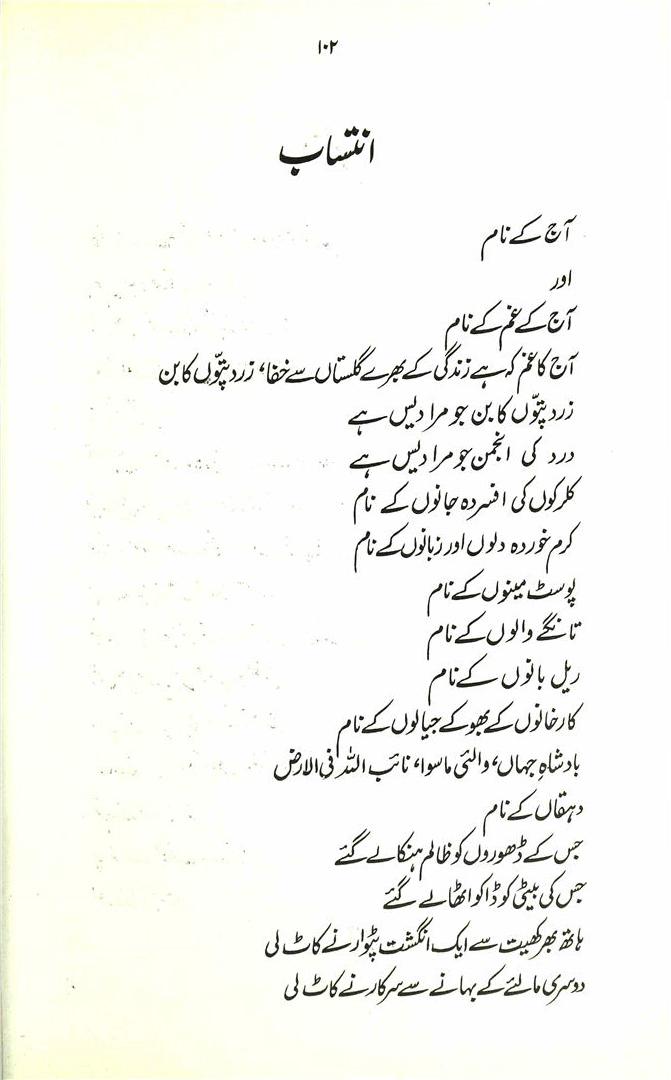 ۱۰۲
انتساب
آج کے نام
اور
آج کے غم کے نام
آج کا غم کہ ہے زندگی کے بھرے گلستاں سے خفا، زرد پتّوں کا بن
زرد پتّوں کا بن جو مرا دیس ہے
درد کی انجمن جو مرا دیس ہے
کلرکوں کی افسردہ جانوں کے نام
کرم خوردہ دلوں اور زبانوں کے نام
پوسٹ مینوں کے نام
تانگے والوں کے نام
ریل بانوں کے نام
کارخانوں کے بھوکے جیالوں کے نام
بادشاہِ جہاں، والئی ماسوا، نائب اللہ فی الارض
دہقاں کے نام
جس کے ڈھوروں کو ظالم ہنکالے گئے
جس کی بیٹی کو ڈاکو اٹھالے گئے
ہاتھ بھر کھیت سے ایک انگشت پٹوار نے کاٹ لی
دوسری مالئے کے بہانے سے سرکار نے کاٹ لی